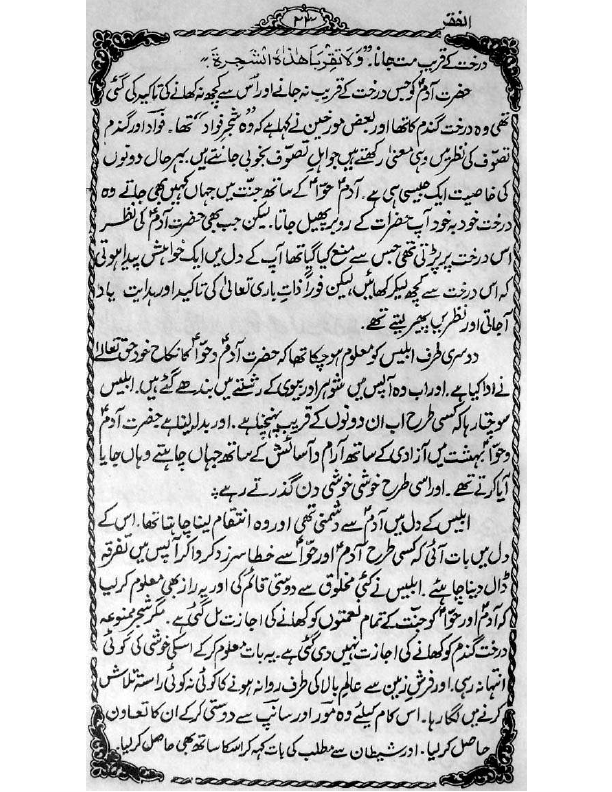 الفقر
۲۳
درخت کے قریب مت جانا۔ "وَلَا تَقْرَبَا هٰذِهِ الشَّجَرَةَ"
حضرت آدمؑ کو جس درخت کے قریب نہ جانے اور اُس سے کچھ نہ کھانے کی تاکید کی گئی
تھی وہ درخت گندم کا تھا اور بعض مورخین نے کہا ہے کہ وہ "شجر فواد" تھا۔ فواد اور گندم
تصوّف کی نظر میں وہی معنیٰ رکھتے ہیں جو اہلِ تصوّف بخوبی جانتے ہیں۔ بہر حال دونوں
کی خاصیت ایک جیسی ہی ہے۔ آدمؑ حوّاؑ کے ساتھ جنّت میں جہاں کہیں بھی جاتے وہ
درخت خود بہ خود آپ حضرات کے روبرو پھیل جاتا۔ لیکن جب بھی حضرت آدمؑ کی نظر
اس درخت پر پڑتی تھی جس سے منع کیا گیا تھا آپ کے دل میں ایک خواہش پیدا ہوتی
کہ اس درخت سے کچھ لیکر کھائیں، لیکن فوراً ذاتِ باری تعالیٰ کی تاکید اور ہدایت یاد
آجاتی اور نظریں پھیر لیتے تھے۔
دوسری طرف ابلیس کو معلوم ہو چکا تھا کہ حضرت آدمؑ و حوّاؑ کا نکاح خود حق تعالیٰ
نے ادا کیا ہے۔ اور اب وہ آپس میں شوہر اور بیوی کے رشتے میں بندھے گئے ہیں۔ ابلیس
سوچتا رہا کہ کسی طرح اب ان دونوں کے قریب پہنچنا ہے۔ اور بدلہ لینا ہے حضرت آدمؑ
و حوّاؑ بہشت میں آزادی کے ساتھ آرام و آسائش کے ساتھ جہاں چاہتے وہاں جایا
آیا کرتے تھے۔ اور اسی طرح خوشی خوشی دن گذرتے رہے۔
ابلیس کے دل میں آدمؑ سے دشمنی تھی اور وہ انتقام لینا چاہتا تھا۔ اس کے
دل میں بات آئی کہ کسی طرح آدمؑ اور حوّاؑ سے خطا سرزد کروا کر آپس میں تفرقہ
ڈال دینا چاہیئے۔ ابلیس نے کئی مخلوق سے دوستی قائم کی اور یہ راز بھی معلوم کر لیا
کہ آدمؑ اور حوّاؑ کو جنّت کے تمام نعمتوں کو کھانے کی اجازت مل گئی ہے۔ مگر شجر ممنوعہ
درخت گندم کو کھانے کی اجازت نہیں دی گئی ہے۔ یہ بات معلوم کرکے اسکی خوشی کی کوئی
انتہا نہ رہی۔ اور فرشِ زمین سے عالم بالا کی طرف روانہ ہونے کا کوئی نہ کوئی راستہ تلاش
کرنے میں لگا رہا۔ اس کام کیلئے وہ مور اور سانپ سے دوستی کرکے ان کا تعاون
حاصل کر لیا۔ اور شیطان سے مطلب کی بات کہہ کر اسکا ساتھ بھی حاصل کر لیا۔